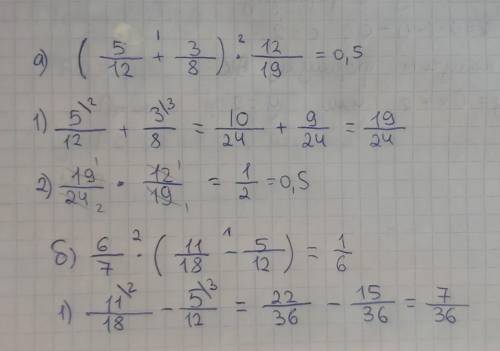 а) ( 5/12 +¹ 3/8 ) ·² 12/19 = 0,5
1) 5\2/12 + 3\3/8 = 10/24 + 9/24 = 19/24
2) 19¹/24₂ · 12¹/19₁ = 1/2 = 0,5
б) 6/7 ·² ( 11/18 -¹ 5/12 ) = 1/6
1) 11\2/18 - 5\3/12 = 22/36 - 15/36 = 7/36